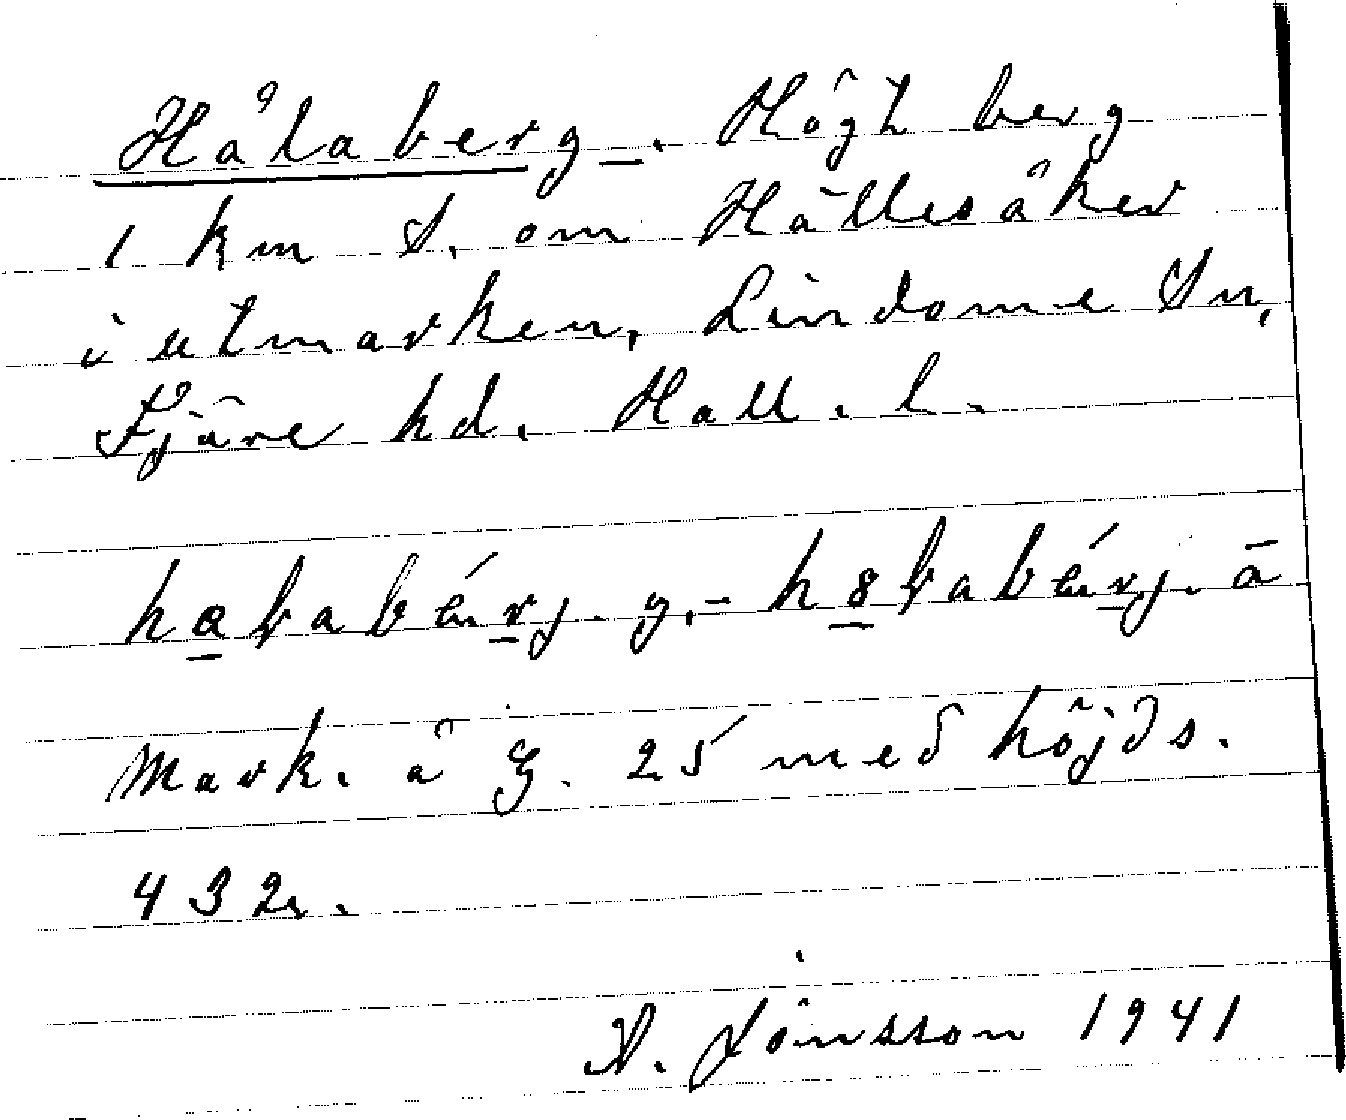 Håtaberg. Högt berg
1 km S. om Hällesåker
i utmarken, Lindome Sn,
Fjäre hd. Hall. l.
y. - ā
Mark. å G. 25 med höjds.
432.
A. Jönsson 1941